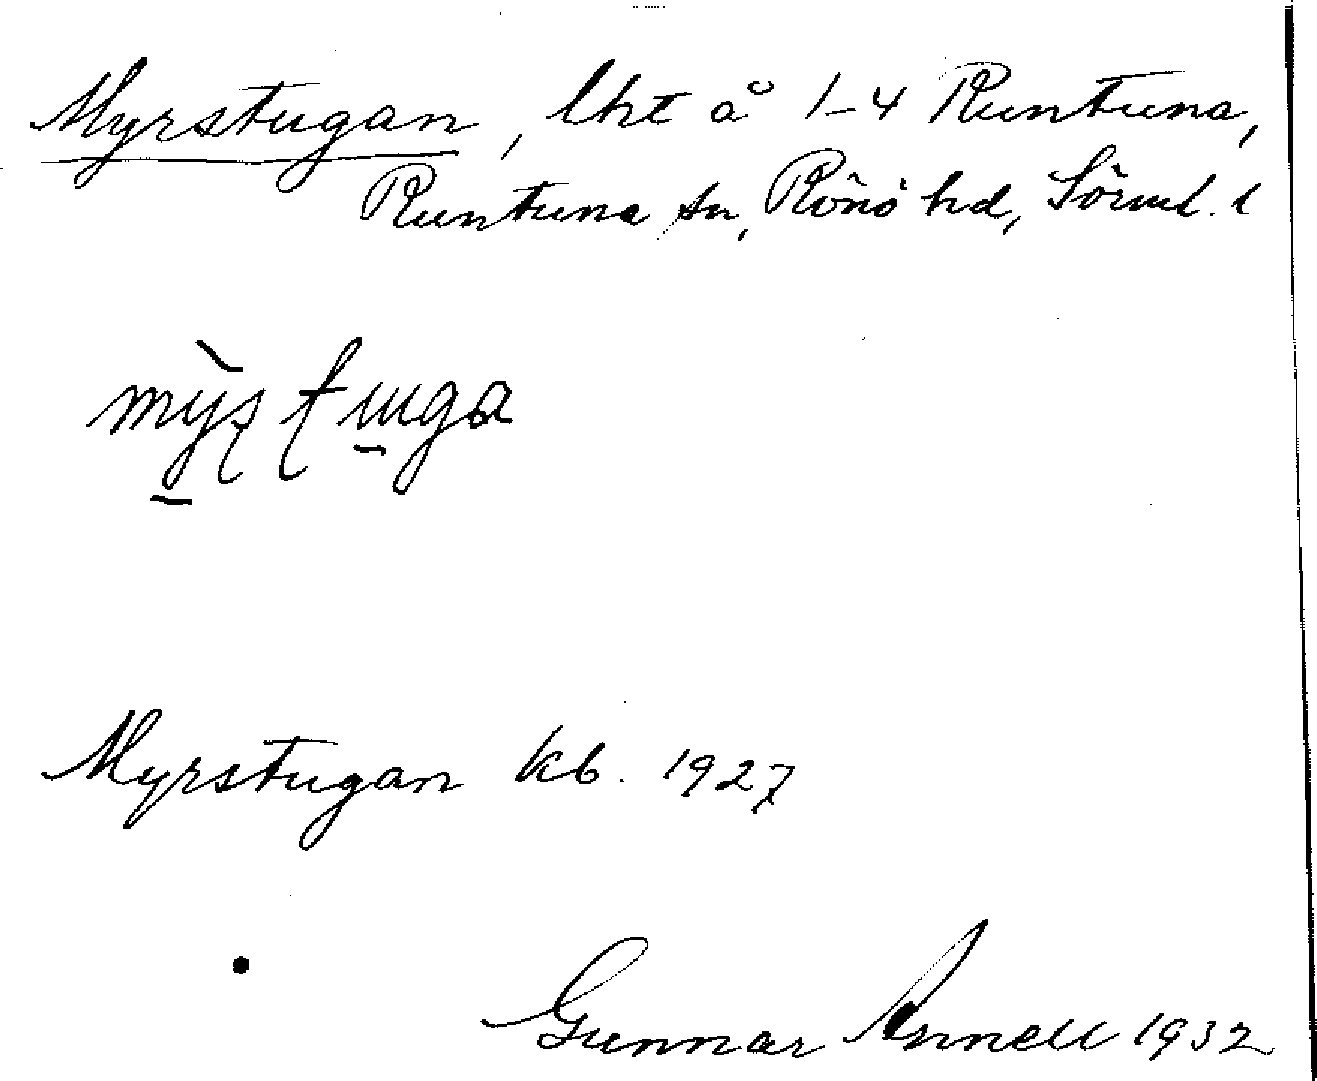 Myrstugan, lht å 1-4 Runtuna,
Runtuna sn, Rönö hd, Sörml. l
Myrstugan kb. 1927
Gunnar Annell 1932